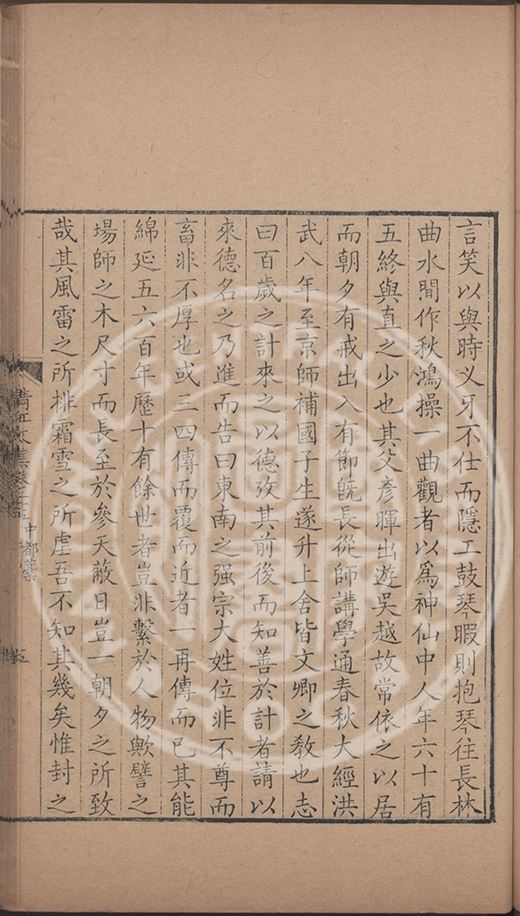 言笑以與時乂牙不仕而隱工鼓琴暇則抱琴往長林
曲水間作秋鴻操一曲觀者以爲神仙中人年六十有
五終與直之少也其父彥暉出遊吳越故常依之以居
而朝夕有戒出入有節旣長從師講學通春秋大經洪
武八年至京師補國子生遂升上舍皆文卿之敎也志
曰百歲之計來之以德攷其前後而知善於計者請以
來德名之乃進而告曰東南之强宗大姓位非不尊而
畜非不厚也或三四傳而覆而近者一再傳而已其能
綿延五六百年歷十有餘世者豈非繫於人物歟譬之
場師之木尺寸而長至於參天蔽日豈一朝夕之所致
哉其風雷之所排霜雪之所虐吾不知其幾矣惟封之
中都藁
五